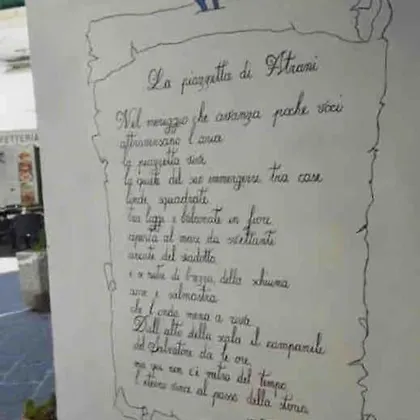 FETTERIA
La piazzetta di Atrani
Nel meriggio che avanza poche voci
attraversano l'aria
la piazzetta vive
la quiete del suo immergersi tra case
linde squadrate
tra loggi e balconate in fiore
aperta al mare da svettanti
arcate del viadotto
e si nutre di brezza della schiuma
acre e salmastra
che l'onda mena a riva
Dall'alto della scala il campanile
del Salvatore da le ore
ma qui non c'è metro del tempo
l'eterno vince al passo della storia